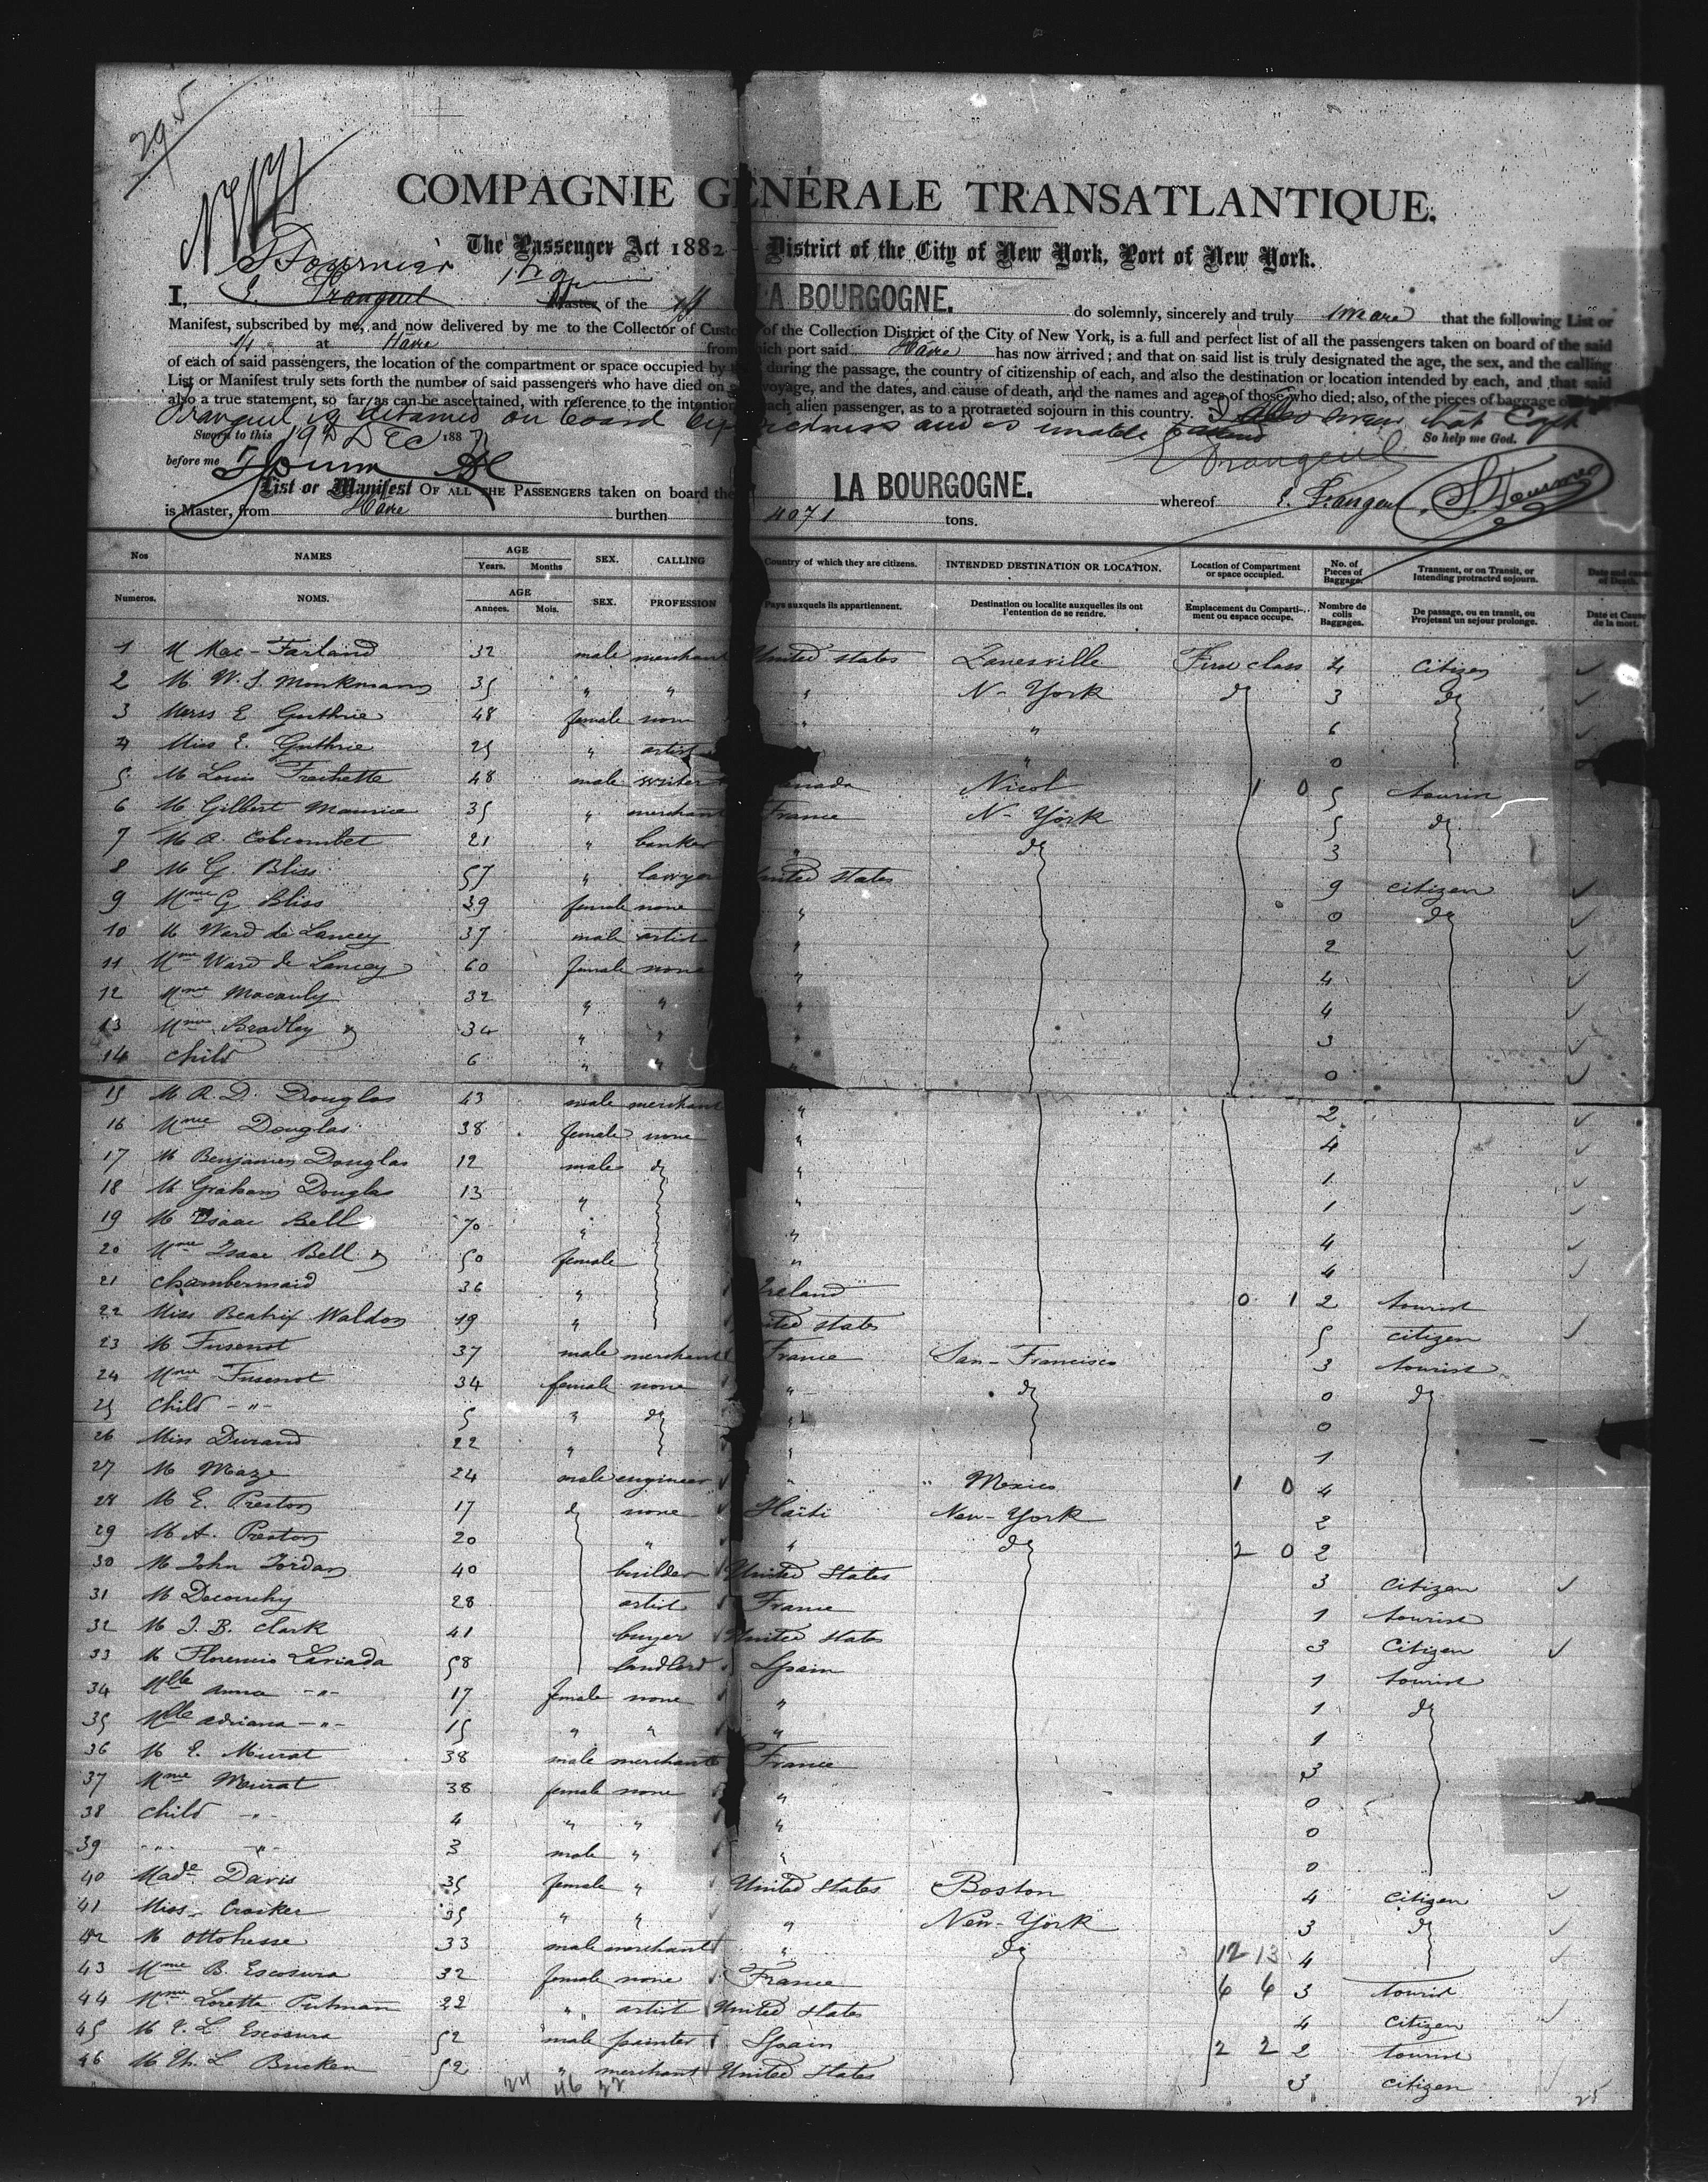 295
COMPAGNIE GÉNÉRALE TRANSATLANTIQUE.
The Passenger Act 1882 District of the City of New York, Port of New York.
S Fournier
I, E. Frangeul Master of the LA BOURGOGNE. do solemnly, sincerely and truly swear that the following List or
Manifest, subscribed by me, and now delivered by me to the Collector of Custo of the Collection District of the City of New York, is a full and perfect list of all the passengers taken on board of the said
at Havre from hich port said Havre has now arrived; and that on said list is truly designated the age, the sex, and the calling
of each of said passengers, the location of the compartment or space occupied by during the passage, the country of citizenship of each, and also the destination or location intended by each, and that said
List or Manifest truly sets forth the number of said passengers who have died on voyage, and the dates, and cause of death, and the names and ages of those who died; also, of the pieces of baggage
also a true statement, so far as can be ascertained, with reference to the intention each alien passenger, as to a protracted sojourn in this country. I also swear that Capt
Frangeul is detained on board by sickness and is unable to attend
Sworn to this 19th Dec 1887 So help me God.
before me E Frangeul
List or Manifest OF ALL THE PASSENGERS taken on board the LA BOURGOGNE. whereof E. Frangeul S. Fournier
is Master, from Havre burthen 4071 tons.
Nos NAMES AGE Years. Months SEX. CALLING Country of which they are citizens. INTENDED DESTINATION OR LOCATION. Location of Compartment or space occupied. No. of Pieces of Baggage. Transient, or on Transit, or Intending protracted sojourn. Date and cause of Death.
Numeros. NOMS. AGE Années. Mois. SEX. PROFESSION Pays auxquels ils appartiennent. Destination ou localite auxquelles ils ont l'entention de se rendre. Emplacement du Comparti-ment ou espace occupe. Nombre de colis Baggages. De passage, ou en transit, ou Projetant un sejour prolonge. Date et Cause de la mort.
1 M Mac-Farland 32 male merchant United states Zanesville First class 4 citizen
2 M. W. S. Monkmann 35 " " " N-York do 3 do
3 Merss E Guthrie 48 female non " " 6
4 Miss E. Guthrie 25 " artist " 0
5 M Louis Frechette 48 male writer anada Nicol 1 0 5 tourist
6 M Gilbert Maurice 35 " merchant France N-York 5 do
7 M A. Colcombet 21 " banker " do 3
8 M G Bliss 57 " lawyer United states 9 citizen
9 Mme G Bliss 39 female none " 0 do
10 M Ward de Lancey 37 male artist " 2
11 Mme Ward de Lancey 60 female none " 4
12 Mme Macauly 32 " " " 4
13 Mme Bradley & 34 " " " 3
14 child 6 " " " 0
15 M A. D. Douglas 43 male merchant " 2
16 Mme Douglas 38 female none " 4
17 M Benjamen Douglas 12 male do " 1
18 M Graham Douglas 13 " " 1
19 M Isaac Bell 70 " " 4
20 Mme Isaac Bell & 50 female " 4
21 chambermaid 36 " Ireland 0 1 2 tourist
22 Miss Beatrix Waldon 19 " ited states 5 citizen
23 M Fusenot 37 male merchant France San-Francisco 3 tourist
24 Mme Fusenot 34 female none " do 0 do
25 child -"- 5 " do " 0
26 Miss Durand 22 " " 1
27 M Maze 24 male engineer " " Mexico 1 0 4
28 M E. Preston 17 do none Haïti New-York 2
29 M A. Preston 20 " " do 2 0 2
30 M John Jordan 40 builder United States 3 citizen
31 M Decouchy 28 artist France 1 tourist
32 M J. B. Clark 41 buyer United states 3 citizen
33 M Florencio Laviada 58 landlord Spain 1 tourist
34 Mlle anna -"- 17 female none " 1 do
35 Mlle adriana -"- 15 " " " 1
36 M E. Murat 38 male merchant France 3
37 Mme Murat 38 female none " 0
38 child -"- 4 " " " 0
39 -"- -"- 3 male " " 0
40 Made Davis 35 female " United States Boston 4 citizen
41 Miss Crocker 35 " " " New-York 3 do
42 M Ottohesse 33 male merchant " do 12 13 4
43 Mme B. Escosura 32 female none France 6 6 3 tourist
44 Mme Loretta Putman 22 " artist United States 4 citizen
45 M L. L Escosura 52 male painter Spain 2 2 2 tourist
46 M Th. L Bucken 52 " merchant United States 3 citizen
24 46 22 25